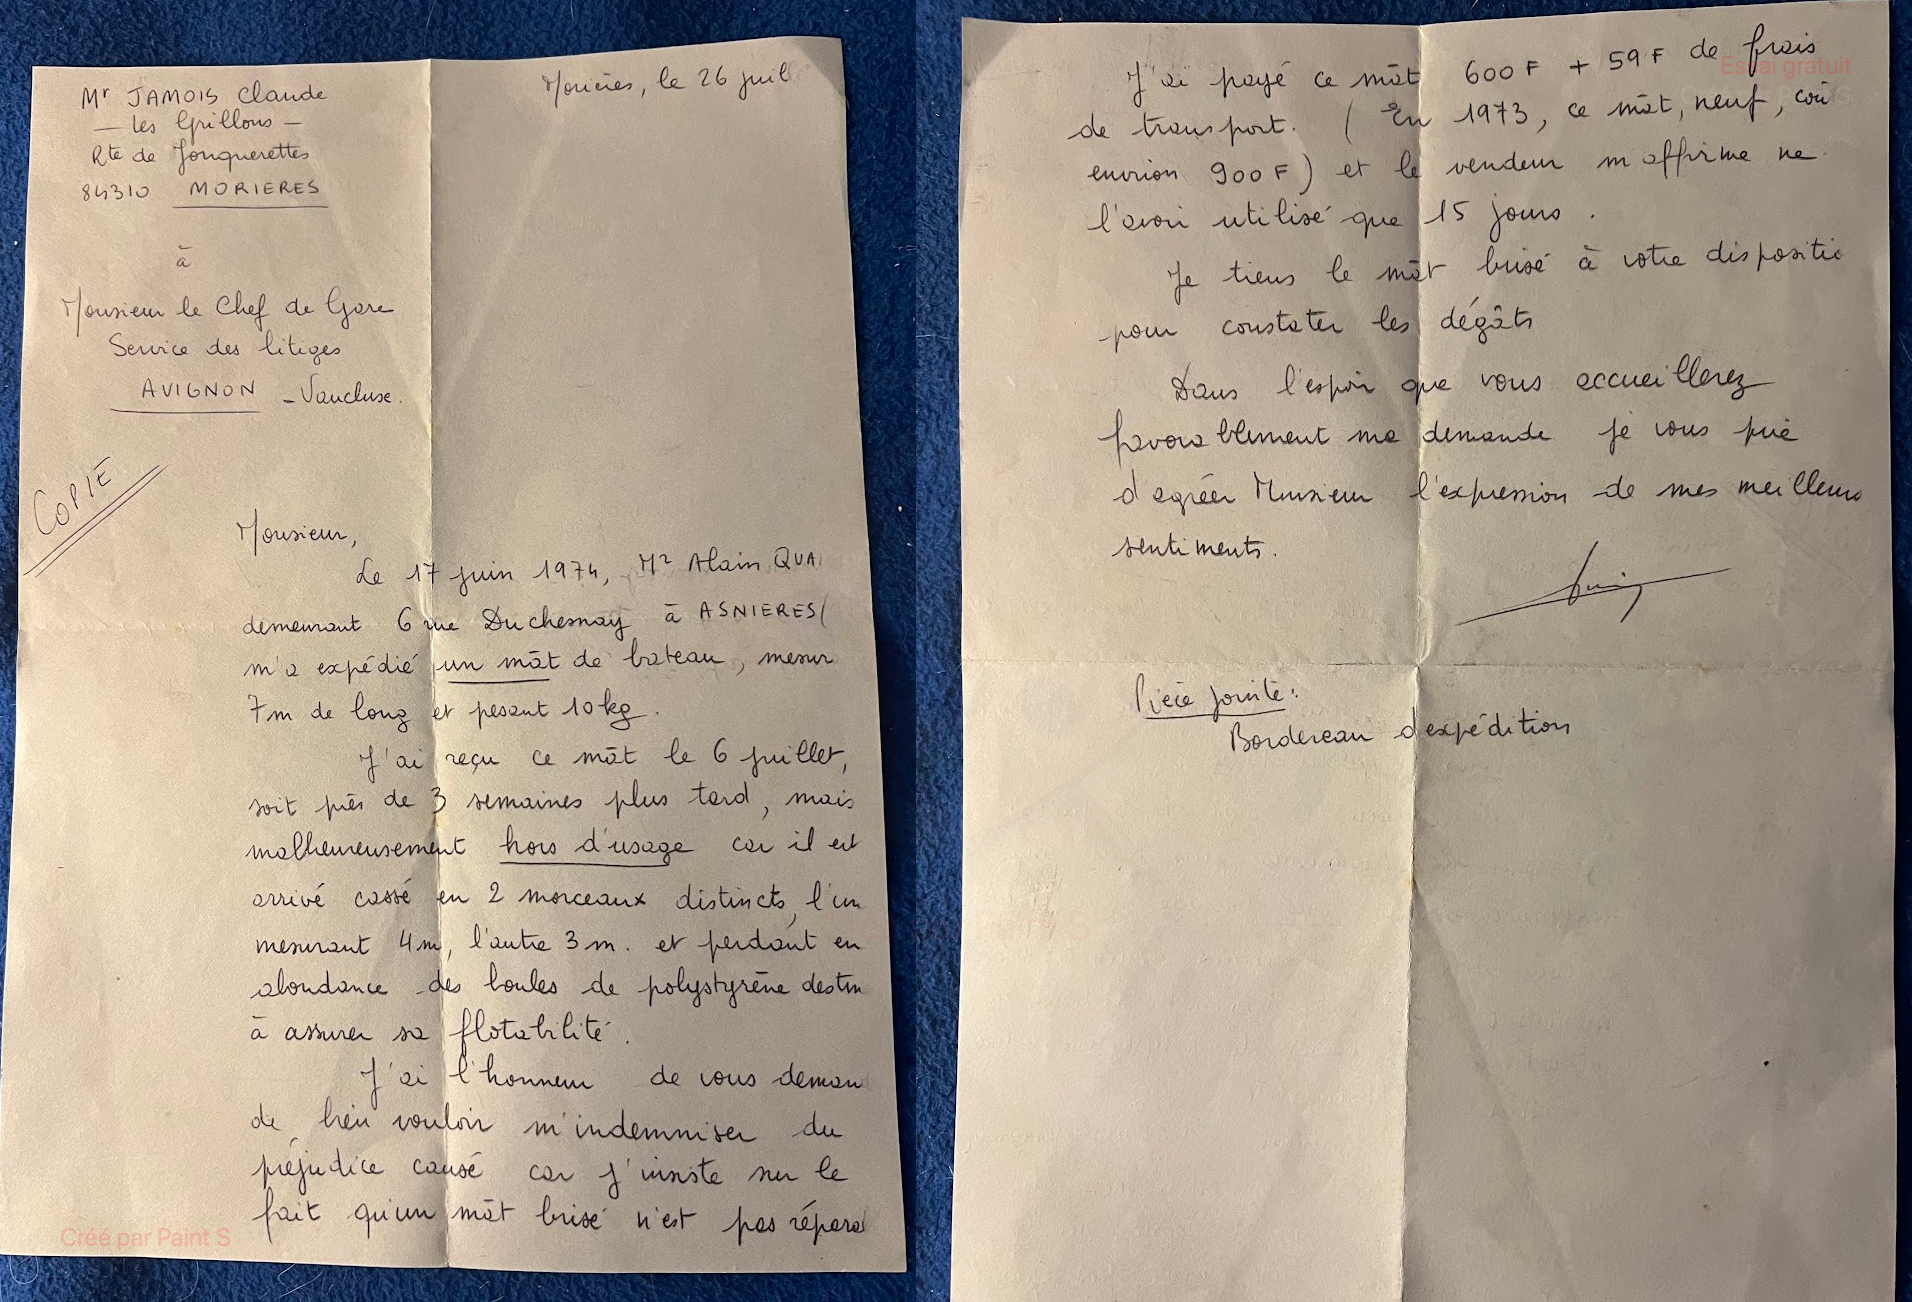 Mr JAMOIS Claude
— Les Grillons —
Rte de Jonquerettes
84310 MORIERES
Morières, le 26 juil
à
Monsieur le Chef de Gare
Service des litiges
AVIGNON - Vaucluse.
COPIE
Monsieur,
Le 17 juin 1974, Mr Alain QUA
demeurant 6 rue Duchesnay à ASNIERES(
m'a expédié un mât de bateau, mesur
7m de long et pesant 10 kg.
J'ai reçu ce mât le 6 juillet,
soit près de 3 semaines plus tard, mais
malheureusement hors d'usage car il est
arrivé cassé en 2 morceaux distincts, l'un
mesurant 4m, l'autre 3m. et perdant en
abondance des boules de polystyrène destin
à assurer sa flotabilité.
J'ai l'honneur de vous deman
de bien vouloir m'indemniser du
préjudice causé car j'insiste sur le
fait qu'un mât brisé n'est pas répara
Créé par Paint S
J'ai payé ce mât 600 F + 59 F de frais
Essai gratuit
de transport. (En 1973, ce mât, neuf, coû
environ 900 F) et le vendeur m'affirme ne
l'avoir utilisé que 15 jours.
Je tiens le mât brisé à votre dispositio
pour constater les dégâts
Dans l'espoir que vous accueillerez
favorablement ma demande je vous prie
d'agréer Monsieur l'expression de mes meilleurs
sentiments.
Pièce jointe:
Bordereau d'expédition